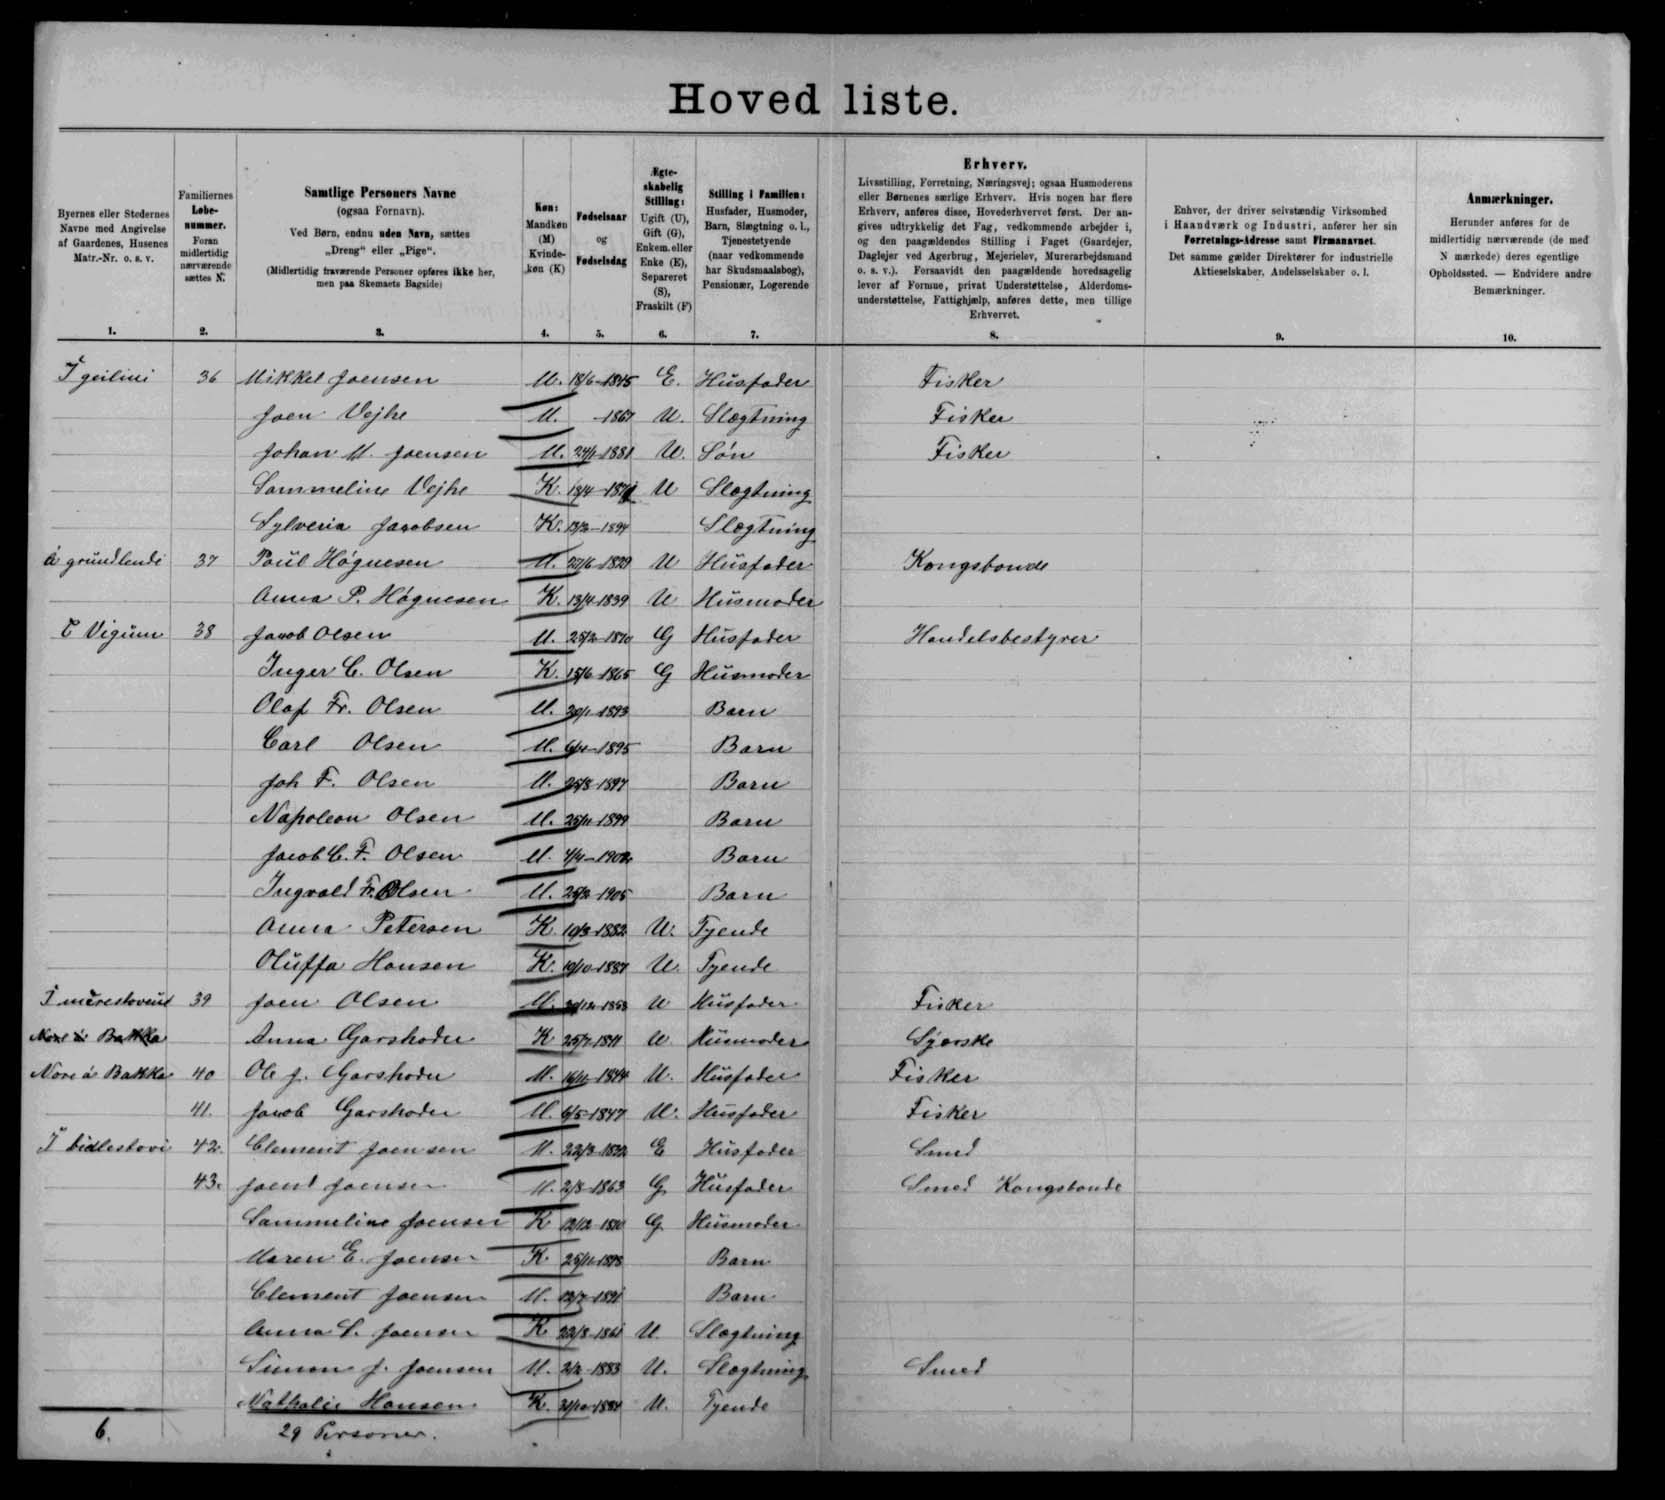 Hoved liste.
Byernes eller Stedernes Navne med Angivelse af Gaardenes, Husenes Matr.-Nr. o. s. v.
Familiernes Løbe-nummer. Foran midlertidig nærværende sættes N.
Samtlige Personers Navne (ogsaa Fornavn). Ved Børn, endnu uden Navn, sættes „Dreng“ eller „Pige“. (Midlertidig fraværende Personer opføres ikke her, men paa Skemaets Bagside)
Køn: Mandkøn (M) Kvinde-køn (K)
Fødselsaar og Fødselsdag
Ægte-skabelig Stilling: Ugift (U), Gift (G), Enkem. eller Enke (E), Separeret (S), Fraskilt (F)
Stilling i Familien: Husfader, Husmoder, Barn, Slægtning o. l., Tjenestetyende (naar vedkommende har Skudsmaalsbog), Pensionær, Logerende
Erhverv. Livsstilling, Forretning, Næringsvej; ogsaa Husmoderens eller Børnenes særlige Erhverv. Hvis nogen har flere Erhverv, anføres disse, Hovederhvervet først. Der an-gives udtrykkelig det Fag, vedkommende arbejder i, og den paagældendes Stilling i Faget (Gaardejer, Daglejer ved Agerbrug, Mejerielev, Murerarbejdsmand o. s. v.). Forsaavidt den paagældende hovedsagelig lever af Formue, privat Understøttelse, Alderdoms-understøttelse, Fattighjælp, anføres dette, men tillige Erhvervet.
Enhver, der driver selvstændig Virksomhed i Haandværk og Industri, anfører her sin Forretnings-Adresse samt Firmanavnet. Det samme gælder Direktører for industrielle Aktieselskaber, Andelsselskaber o. l.
Anmærkninger. Herunder anføres for de midlertidig nærværende (de med N mærkede) deres egentlige Opholdssted. — Endvidere andre Bemærkninger.
1. 2. 3. 4. 5. 6. 7. 8. 9. 10.
Í geilini 36 Mikkel Joensen M. 18/6-1845 E. Husfader Fisker
Joen Vejhe M. -1867 U. Slægtning Fisker
Johan M. Joensen M. 24/1-1881 U. Søn Fisker
Sammeline Vejhe K. 18/4 U Slægtning
Sylveria Jacobsen K. 13/2-1894 Slægtning
á grundlendi 37 Poul Høgnesen M. 27/6-1829 U Husfader Kongsbonde
Anna P. Høgnesen K. 13/4-1839 U Husmoder
38 Jacob Olsen M. 25/2-1870 G Husfader Handelsbestyrer
Inger C. Olsen K. 15/6-1865 G Husmoder
Olaf Fr. Olsen M. 20/1-1893 Barn
Carl Olsen M. -1895 Barn
Joh F. Olsen M. 25/8-1897 Barn
Napoleon Olsen M. 25/11-1899 Barn
Jacob C. F. Olsen M. 4/4-1902 Barn
Ingvald Fr. Olsen M. 25/2-1905 Barn
Anna Petersen K 10/3-1882 U. Tyende
Oluffa Hansen K. 19/10-1887 U. Tyende
39 Joen Olsen M. U Husfader Fisker
Nore á Bakka Anna Garshoder K 25/7 U. Husmoder Syerske
Nore á Bakka 40 Ole J. Garshoder M. 16/11-1844 U. Husfader Fisker
41. Jacob Garshoder M. 6/5-1847 U. Husfader Fisker
Í bidlestovi 42. Clement Joensen M. E Husfader Smed
43. Joen Joensen M. 2/8-1863 G Husfader Smed Kongsbonde
Sammeline Joensen K 12/12 G Husmoder
Maren E. Joensen K. 25/11-1898 Barn
Clement Joensen M. 12/7-1891 Barn
Anna S. Joensen K. 22/8-1861 U. Slægtning
Simon J. Joensen M. 2/2-1883 U. Slægtning Smed
Nathalie Hansen K. U. Tyende
6. 29 Personer.